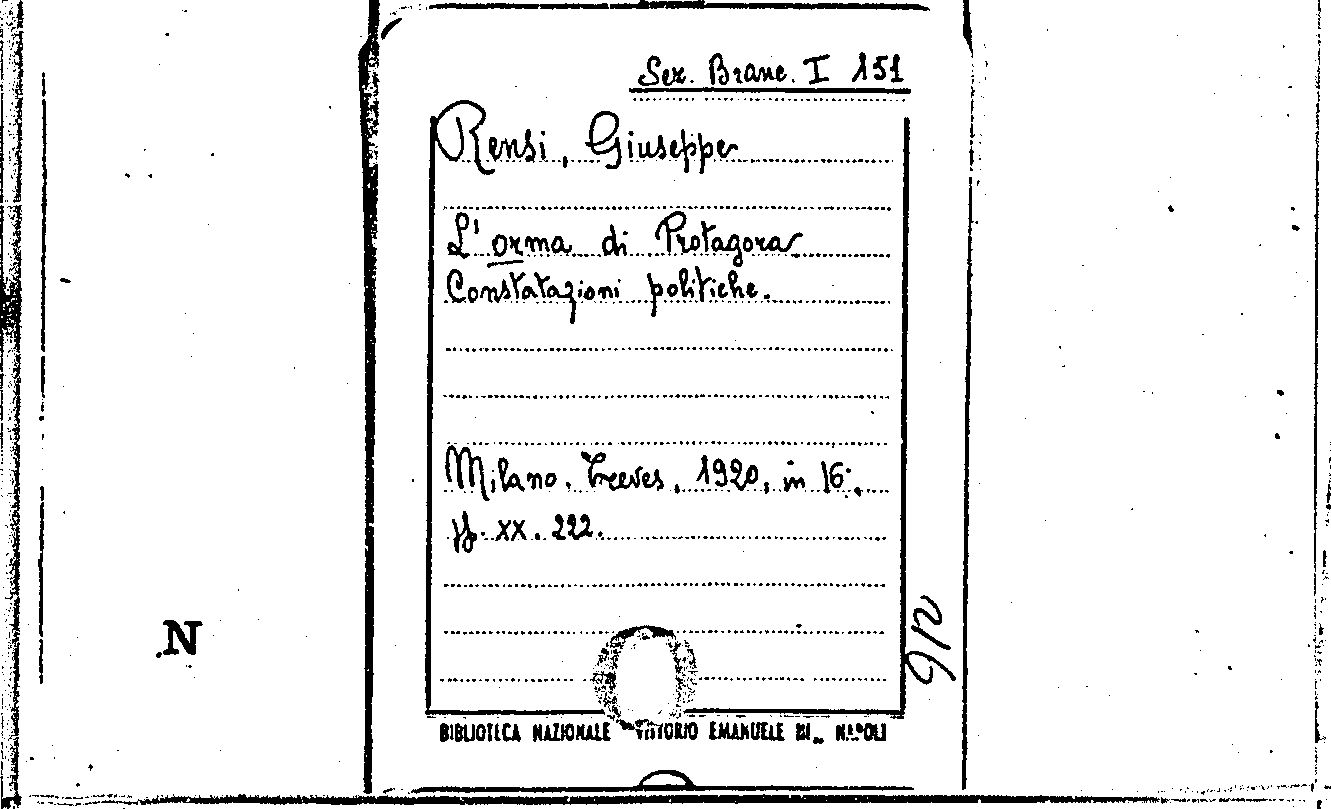 Sez. Branc. I 151
Rensi, Giuseppe
L'orma di Protagora
Constatazioni politiche.
Milano. Treves, 1920, in 16°.
pp. XX. 222.
N
BIBLIOTECA NAZIONALE VITTORIO EMANUELE NAPOLI